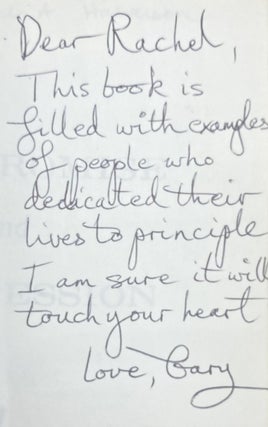 Dear Rachel,
This book is
filled with examples
of people who
dedicated their
lives to principle
I am sure it will
touch your heart
Love, Gary